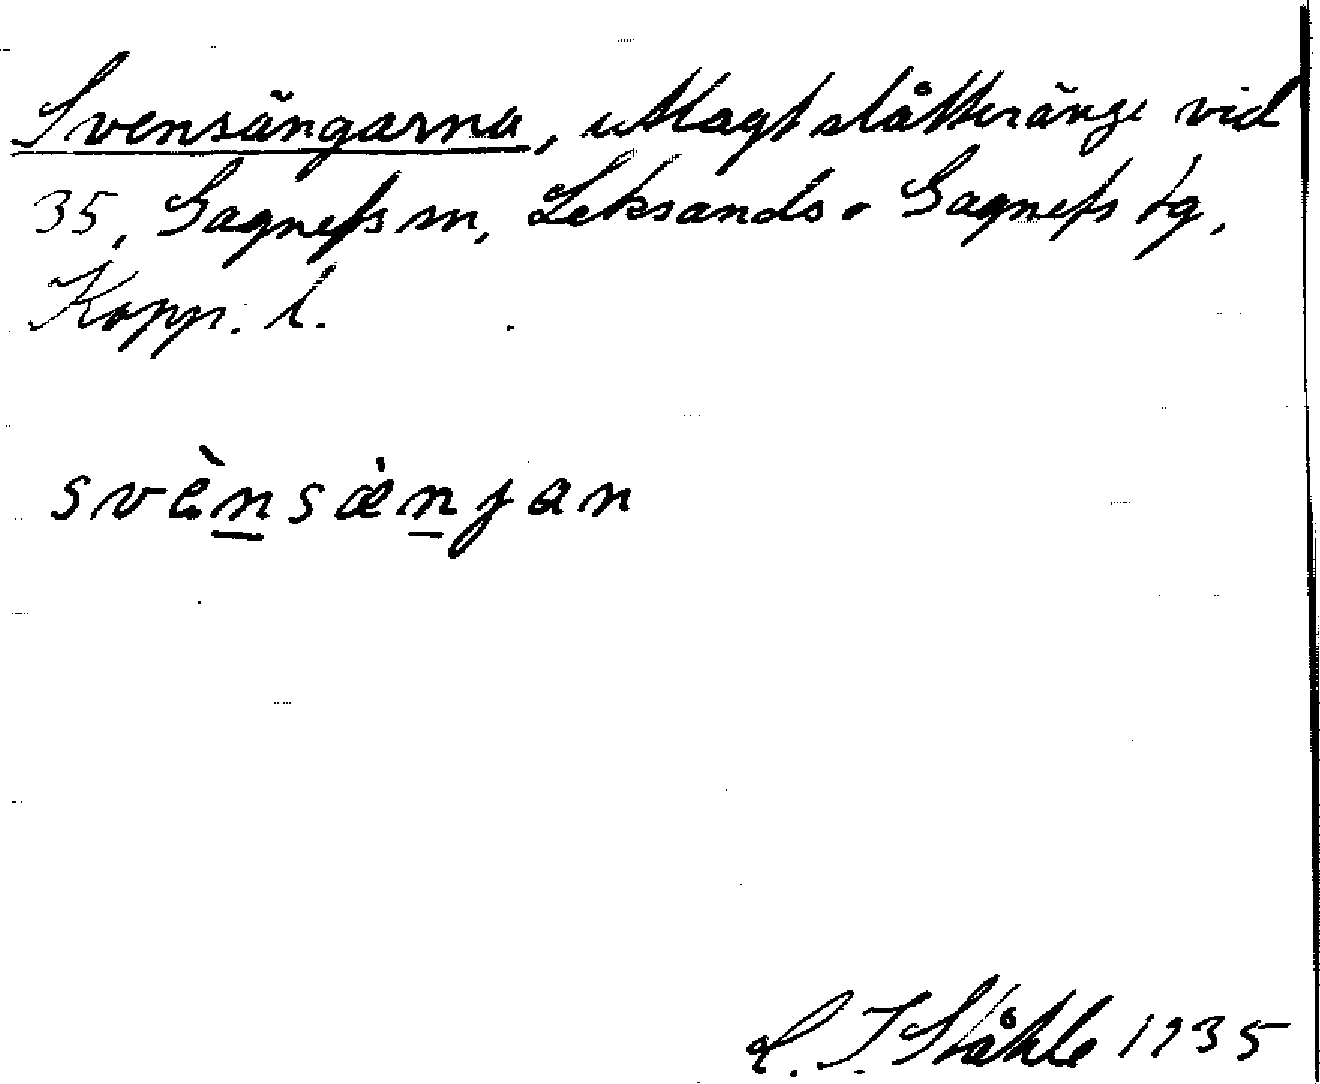 Svensängarna, utlagt slåtteränge vid
35, Gagnefs sn, Leksands o Gagnefs tg,
Kopp. l.
svènsæ̀njan
C. I. Ståhle 1935